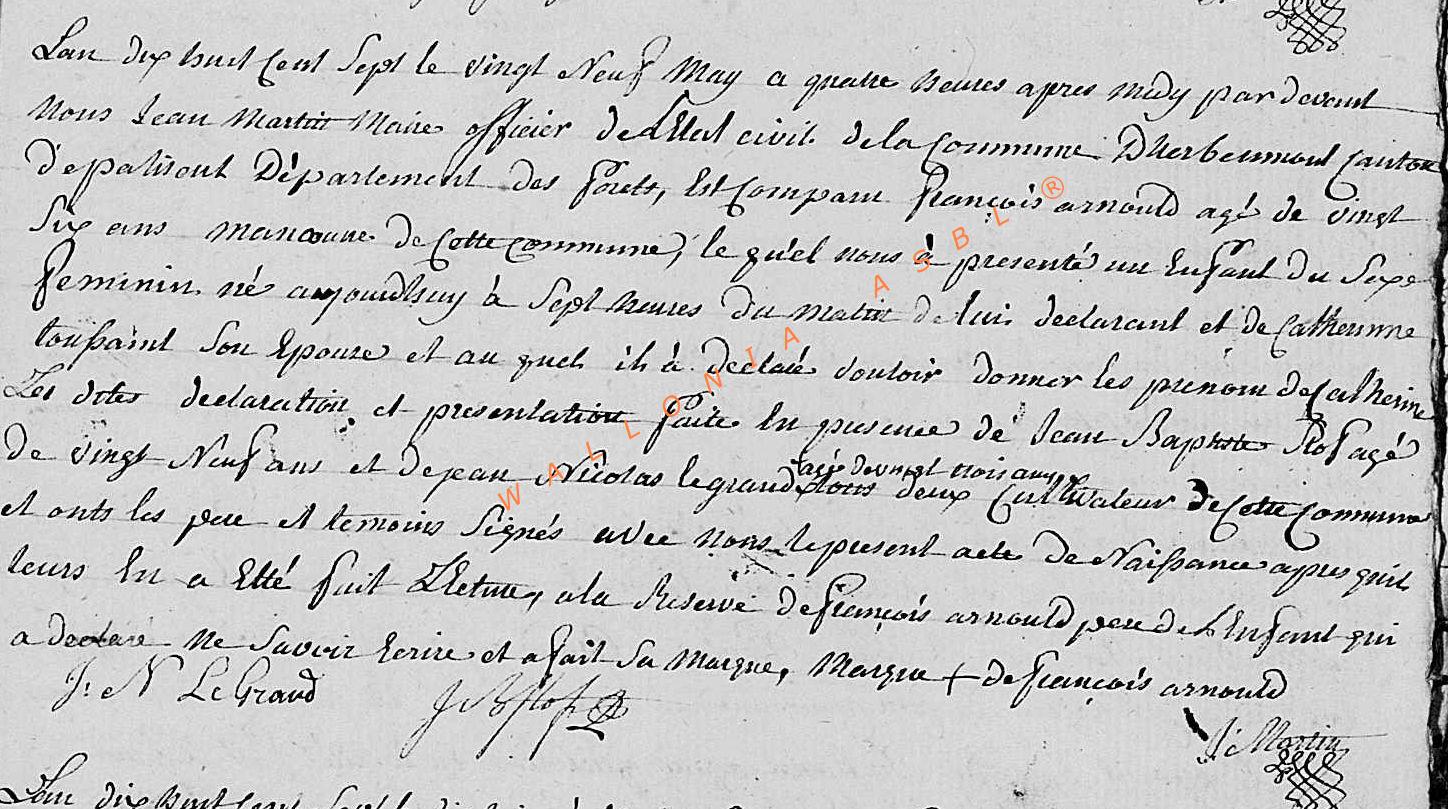 Lan dix huit Cent Sept le vingt Neuf May a quatre heures apres midy par devant
Nous Jean Martin Maire officier de LEtat civil de la Commune Dherbeumont Canton
depaliseut Département des forets, Est Comparu françois arnould agé de vingt
Six ans manœuvre de Cette commune, le quel nous à presenté un Enfant du Sexe
feminin né aujourdhuy à Sept heures du matin de lui declarant et de Catherinne
toussaint Son Epouse et au quel il à déclaré vouloir donner les prénom de Catherine
Les dites declaration et presentation faite En presence de Jean Baptiste Rof agé
agé de vingt trois ans
de vingt Neuf ans et de jean Nicolas legrand tous deux Cultivateur de Cette Commune
et onts les pere et temoins Signés avec nous le present acte de Naissance apres quil
leurs En a Etté fait Lletture, ala Reserve de françois arnould pere de L Enfant qui
a declaré ne Savoir Ecrire et a fait Sa Marque, Marque + de françois arnould
J: N LeGrand
J Martin
Lan dix huit Cent Sept le
WALLONIA ASBL ®